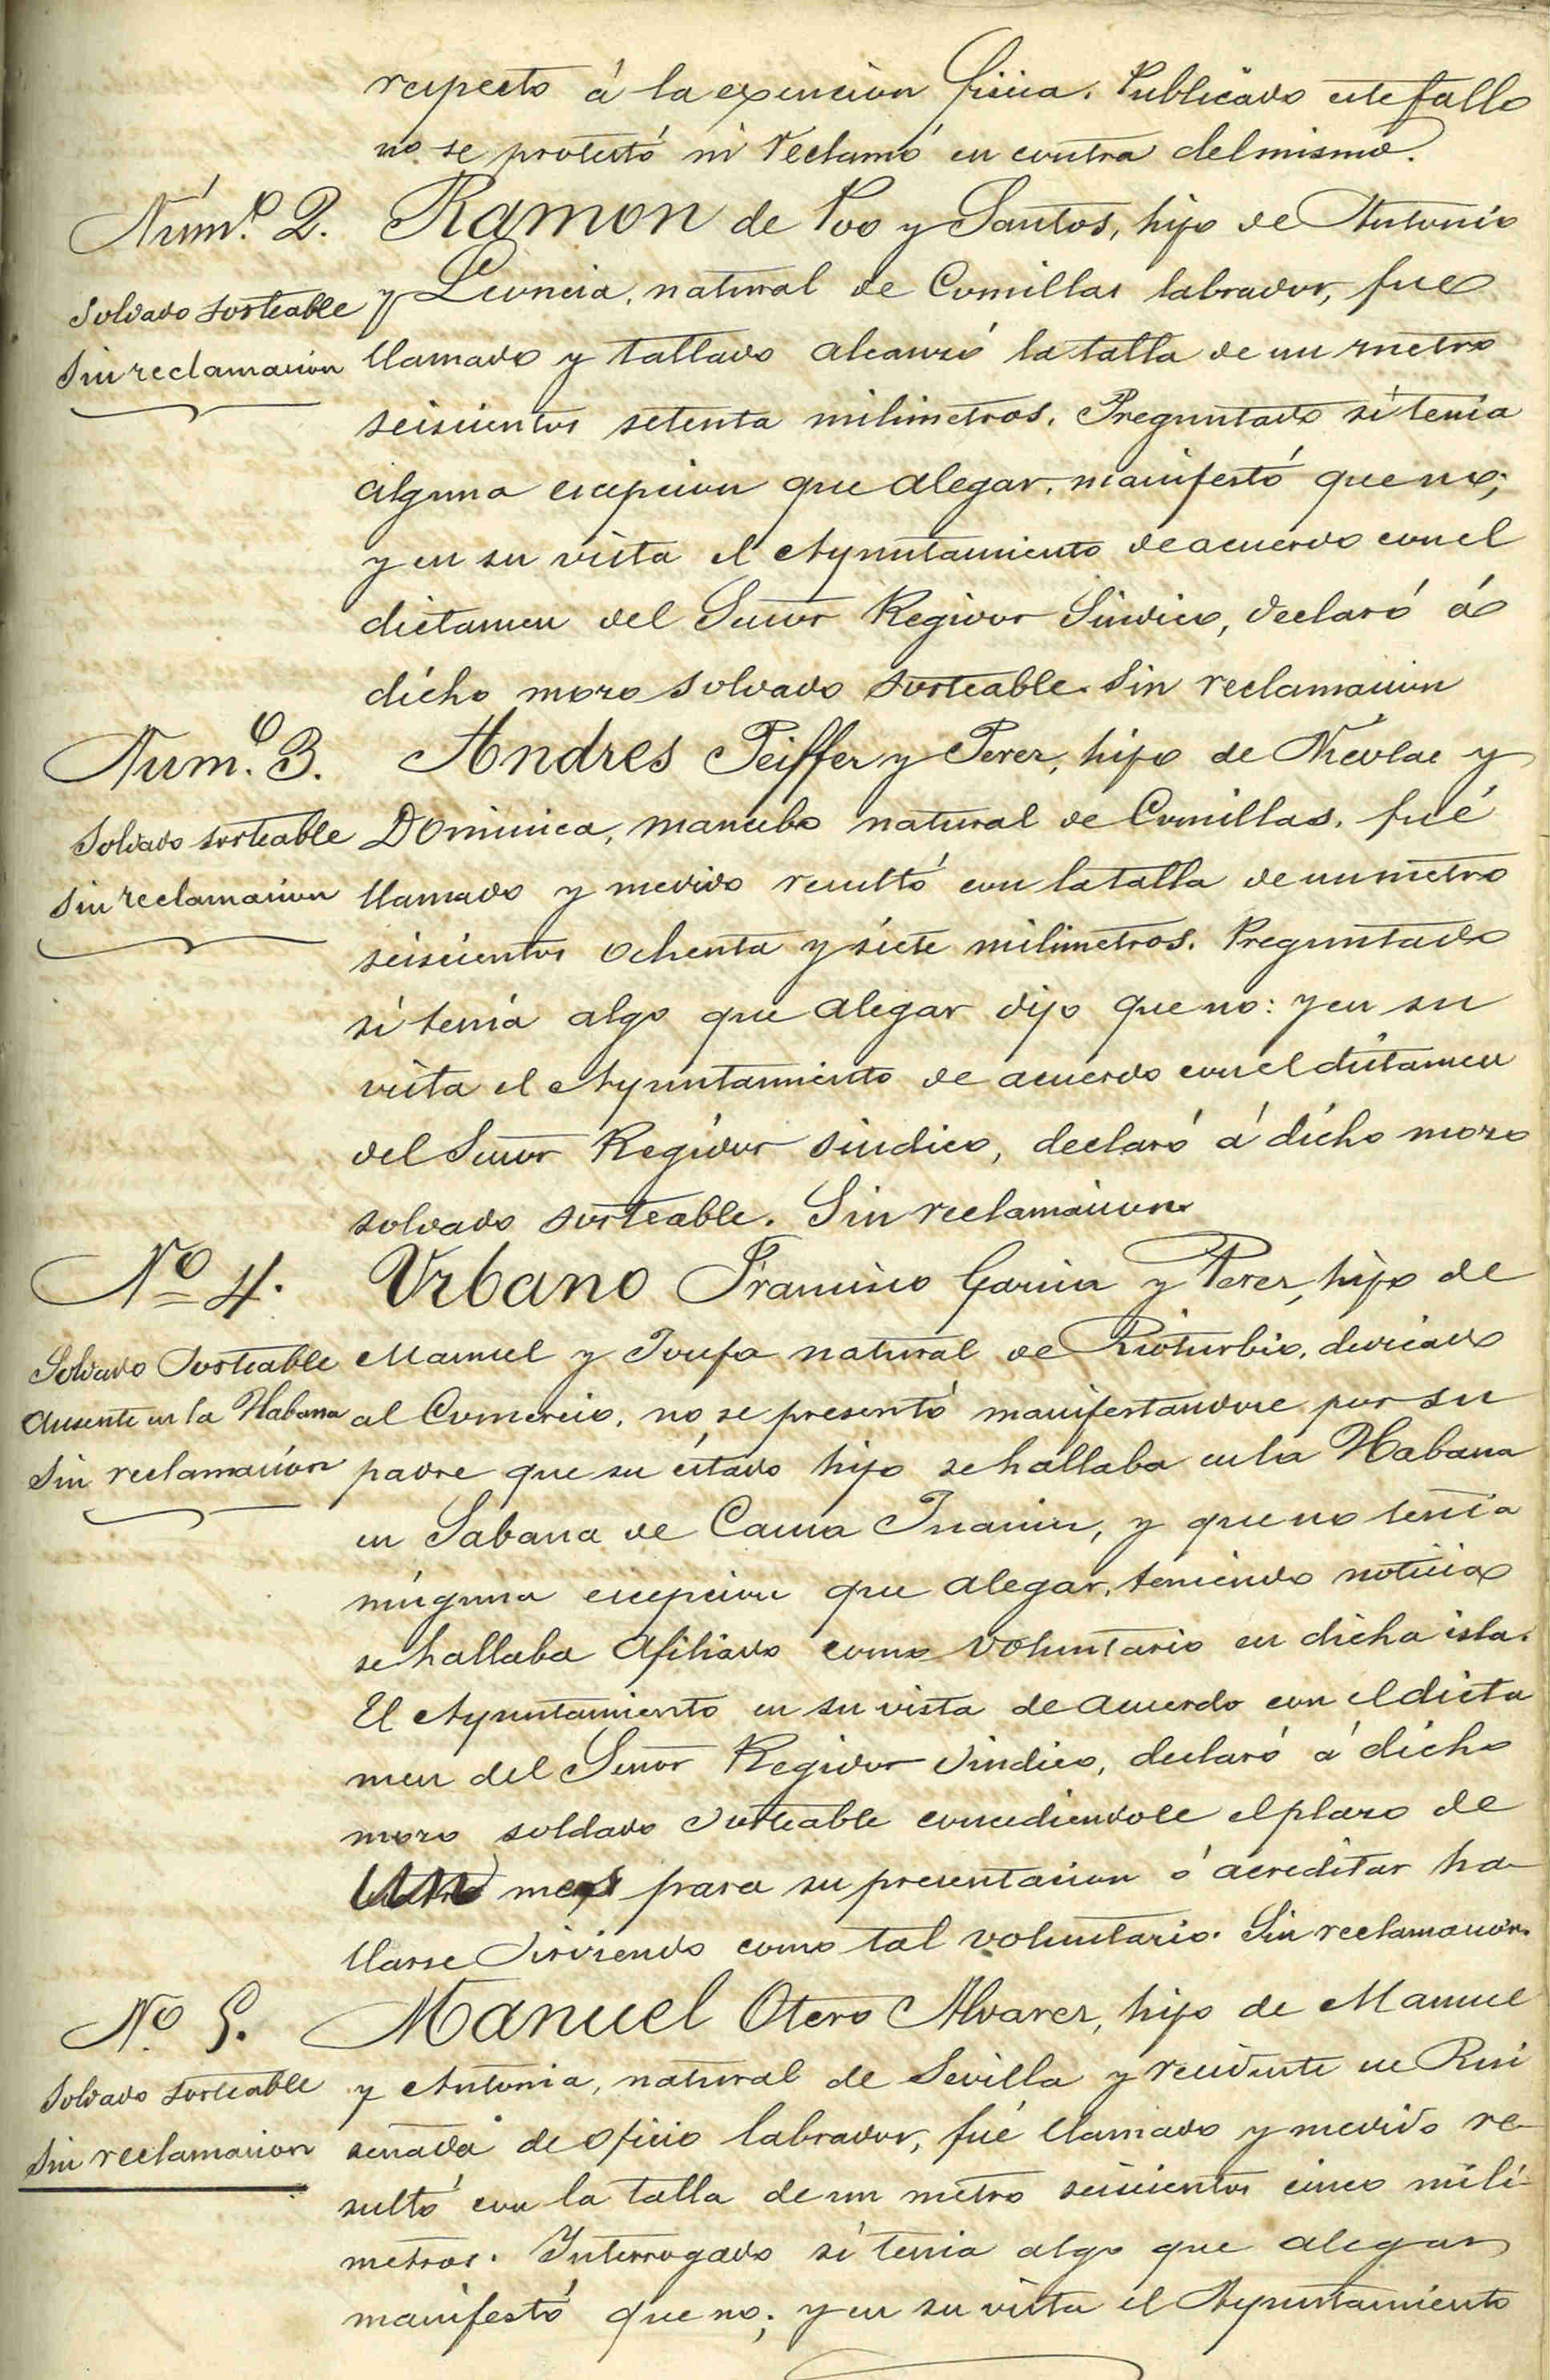 respecto á la exencion fisica. Publicado este fallo
no se protestó ni reclamó en contra del mismo.
Núm.º 2.
Soldado sorteable
Sin reclamacion
Ramon de Poo y Santos, hijo de Antonio
y Leoncia, natural de Comillas labrador, fue
llamado y tallado alcanzó la talla de un metro
seiscientos setenta milimetros. Preguntado si tenia
alguna escepcion que alegar, manifestó que no;
y en su vista el Ayuntamiento de acuerdo con el
dictamen del Señor Regidor Sindico, declaró á
dicho mozo soldado sorteable. Sin reclamacion
Num.º 3.
Soldado sorteable
Sin reclamacion
Andres Peiffer y Perez, hijo de Nicolas y
Dominica, mancebo natural de Comillas, fué
llamado y medido resultó con la talla de un metro
seiscientos ochenta y siete milimetros. Preguntado
si tenia algo que alegar dijo que no: y en su
vista el Ayuntamiento de acuerdo con el dictamen
del Señor Regidor sindico, declaró á dicho mozo
soldado sorteable. Sin reclamacion
Nº 4.
Soldado Sorteable
Ausente en la Habana
Sin reclamacion
Urbano Francisco Garcia y Perez, hijo de
Manuel y Josefa natural de Rioturbio, dedicado
al Comercio, no se presentó manifestandose por su
padre que su citado hijo se hallaba en la Habana
en Sabana de Cama y que no tenia
ninguna escepcion que alegar, teniendo noticias
se hallaba afiliado como voluntario en dicha isla.
El Ayuntamiento en su vista de acuerdo con el dicta
men del Señor Regidor Sindico, declaró á dicho
mozo soldado Sorteable concediendole el plazo de
mes para su presentacion ó acreditar ha-
llarse Sirviendo como tal voluntario. Sin reclamacion.
Nº 5.
Soldado sorteable
Sin reclamacion
Manuel Otero Alvarez, hijo de Manuel
y Antonia, natural de Sevilla y residente en Rui
senada de oficio labrador, fué llamado y medido re-
sultó con la talla de un metro seiscientos cinco mili-
metros. Interrogado si tenia algo que alegar
manifestó que no; y en su vista el Ayuntamiento